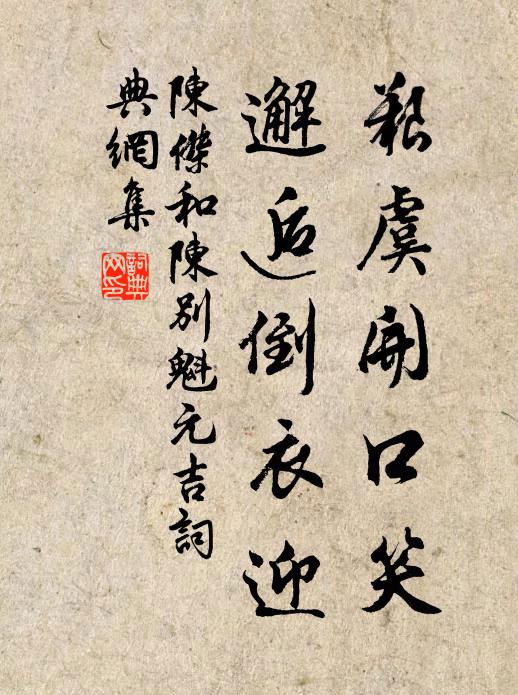 艱虞開口笑
邂逅倒衣迎
陳傑和陳別魁元吉詞
典網集
詞典
网印